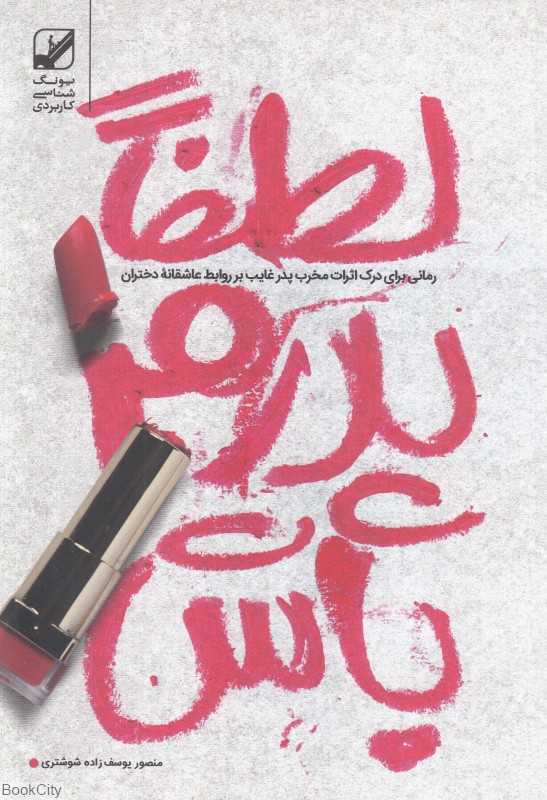 یونگ
شناسی
کاربردی
لطفاً
رمانی برای درک اثرات مخرب پدر غایب بر روابط عاشقانهٔ دختران
پدرم
باش
منصور یوسف زاده شوشتری
BookCity